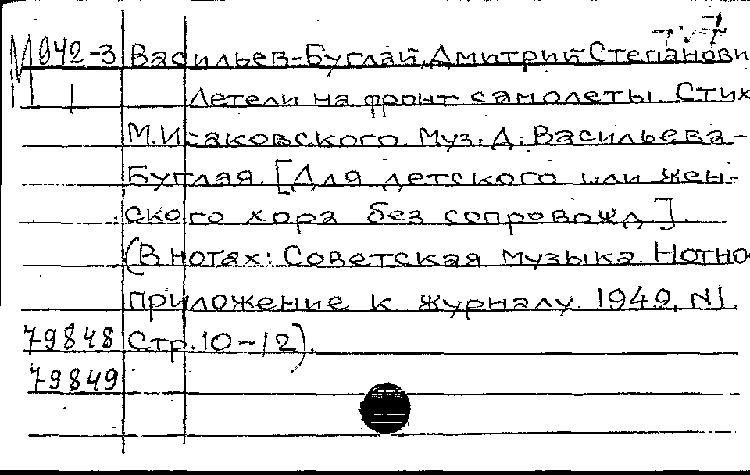 М 042-3 Васильев-Буглай, Дмитрий Степанови
1 Летели на фронт самолеты. Стих
М. Исаковского. Муз. Д. Васильева-
Буглая. [Для детского или жен-
ского хора без сопровожд.].
(В нотах: Советская музыка. Нотно
приложение к журналу. 1940, №1.
79848 Стр. 10-12).
79849